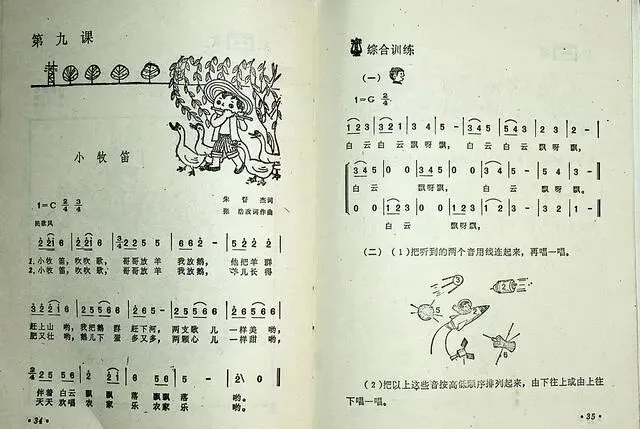 第九课
小牧笛
1=C 2/4 3/4
朱晋杰词
张 改词作曲
民歌风
2 2i 6 | 2 2i 6 | 3/4 2 2 5 5 | 6 6 2 - | 5 2 2 2 |
1.小牧笛, 吹吹歌, 哥哥放羊 我放鹅, 他把羊群
2.小牧笛, 吹吹歌, 哥哥放羊 我放鹅, 羊儿长得
赶上山 哟, 我把鹅 群 赶下河, 两支歌 儿 一样美 哟,
肥又壮 哟, 鹅儿下 蛋 多又多, 两颗心 儿 一样甜 哟,
伴着 白云 飘 飘 落 飘飘 落 哟。
天天 欢唱 农 家 乐 农家 乐 哟。
·34·
综合训练
(一)
1=G 2/4
1 2 3 | 3 2 3 1 | 3 4 5 | 4 5 - | 3 4 5 | 5 4 3 | 2 3 | 2 - ‖
白云 白云 飘呀飘, 白云 白云 飘呀飘。
3 4 5 | 0 0 | 3 4 5 | 0 0 | 3 4 5 | 0 0 | 3 4 5 | 3 - ‖
白云 飘呀飘, 白云 飘呀飘。
0 0 | 1 2 3 | 0 0 | 1 2 3 | 0 0 | 1 2 3 | 0 0 | 1 - ‖
白云 飘呀飘,
(二) (1)把听到的两个音用线连起来,再唱一唱。
3
2
5
6
(2)把以上这些音按高低顺序排列起来,由下往上或由上往
下唱一唱。
·35·